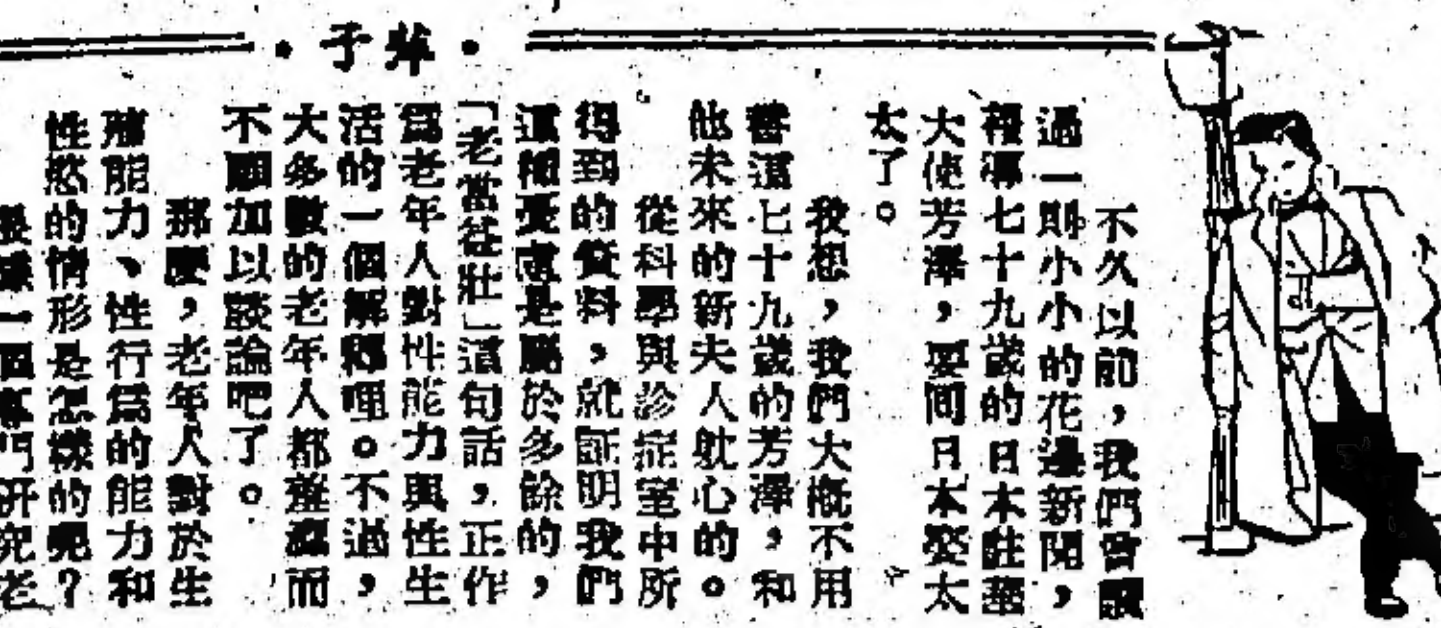 ·子犖·
不久以前，我們曾讀
過一則小小的花邊新聞，
報導七十九歲的日本駐華
大使芳澤，要回日本娶太
太了。
我想，我們大概不用
替這七十九歲的芳澤，和
他未來的新夫人躭心的。
從科學與診症室中所
得到的資料，就証明我們
這種憂慮是屬於多餘的，
「老當益壯」這句話，正作
爲老年人對性能力與性生
活的一個解釋哩。不過，
大多數的老年人都羞而
不願加以談論吧了。
那麼，老年人對於生
殖能力、性行爲的能力和
性慾的情形是怎樣的呢？
根據一個專門研究老